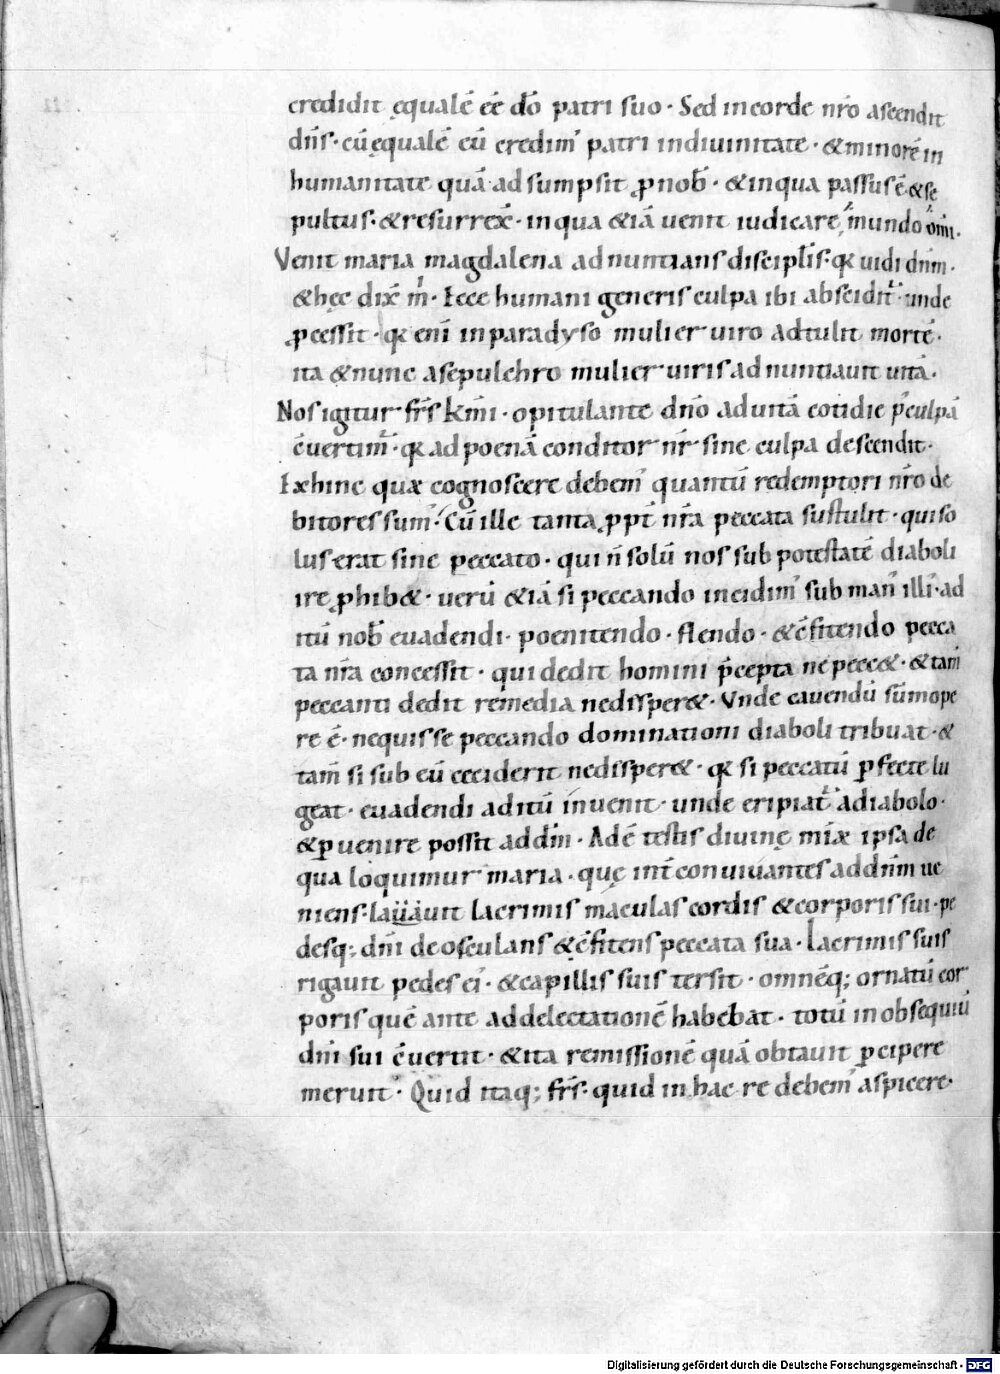 credidit ęqualē eē dō patri suo · Sed in corde nr̄o ascendit
dn̄s · cū ęqualē eū credim᾽ patri in diuinitate · & minorē in
humanitate quā adsumpsit ꝓ nob̄ · & in qua passus ē & se
pultus · & resurrex̄ · in qua & iā uenit iudicare mundo om̄i ·
Venit maria magdalena adnuntians discipl̄is · qꝛ uidi dn̄m ·
& hęc dix̄ m̄ · Ecce humani generis culpa ibi abscidit᷑ · unde
ꝓcessit · qꝛ eni᷑ in paradyso mulier uiro adtulit mortē ·
ita & nunc a sepulchro mulier uiris adnuntiauit uitā ·
Nos igitur fr̄s km̄i · opitulante dn̄o ad uitā cotidie p᾽ culpā
c̄uertim᷑ · qꝛ ad poenā conditor nr̄ sine culpa descendit ·
Ex hinc quæ cognoscere debem᾽ quantū redemptori nr̄o de
bitores sum᾽ · Cū ille tanta ꝓpt̄ nr̄a peccata sustulit · qui so
lus erat sine peccato · qui n̄ solū nos sub potestatē diaboli
ire ꝓhib& · uerū & iā si peccando incidim᾽ sub man᾽ illi᾽ · ad
itū nob̄ euadendi · poenitendo · flendo · & c̄fitendo pecca
ta nr̄a concessit · qui dedit homini p̄cepta ne pecc& · & tam̄
peccanti dedit remedia ne disper& · Vnde cauendū sūmope
re ē · ne quis se peccando dominationi diaboli tribuat · &
tam̄ si sub eū ceciderit ne disper& · qꝛ si peccatū ꝑfecte lu
geat · euadendi aditū inuenit · unde eripiat᷑ a diabolo ·
& ꝑuenire possit ad dm̄ · Adē testis diuinę mīæ ipsa de
qua loquimur maria · quę int̄ conuiuantes ad dn̄m ue
niens · lauauit lacrimis maculas cordis & corporis sui · pe
desq; dn̄i deosculans & c̄fitens peccata sua · Lacrimis suis
rigauit pedes ei᾽ · & capillis suis tersit · omnēq; ornatū cor
poris quē ante ad delectationē habebat · totū in obsequiū
dn̄i sui c̄uertit · & ita remissionē quā obtauit ꝑcipere
meruit · Quid itaq; fr̄s · quid in hac re debem᾽ aspicere ·
Digitalisierung gefördert durch die Deutsche Forschungsgemeinschaft - DFG